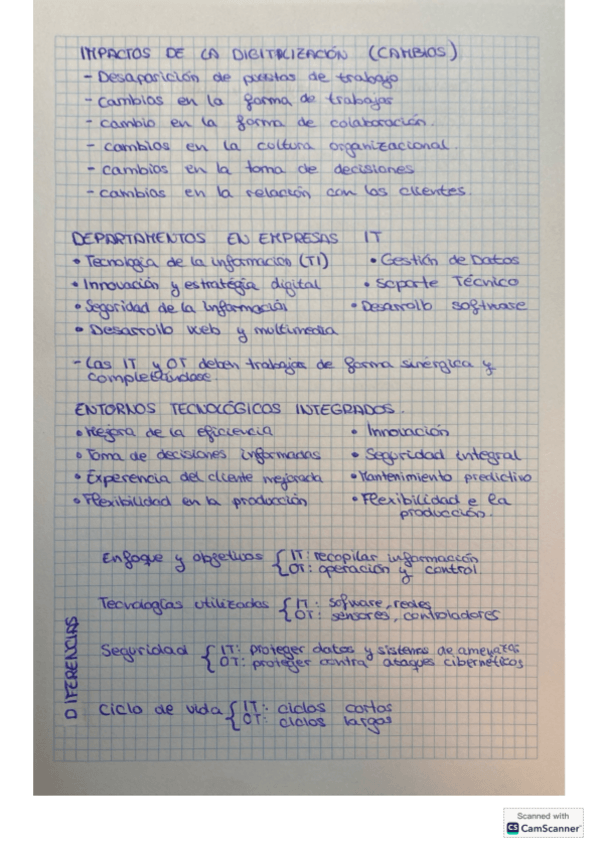 IMPACTOS DE LA DIGITALIZACIÓN (CAMBIOS)
- Desaparición de puestos de trabajo
- Cambios en la forma de trabajar
- Cambio en la forma de colaboración.
- Cambios en la cultura organizacional.
- Cambios en la toma de decisiones
- Cambios en la relación con los clientes.
DEPARTAMENTOS EN EMPRESAS IT
• Tecnología de la información (TI) • Gestión de Datos
• Innovación y estratégia digital • Soporte Técnico
• Seguridad de la información • Desarrollo software
• Desarrollo web y multimedia
- Las IT y OT deben trabajar de forma sinérgica y
completándose
ENTORNOS TECNOLÓGICOS INTEGRADOS.
• Mejora de la eficiencia • Innovación
• Toma de decisiones informadas • Seguridad integral
• Experiencia del cliente mejorada • Mantenimiento predictivo
• Flexibilidad en la producción • Flexibilidad e la
producción.
DIFERENCIAS
Enfoque y objetivos { IT: recopilar información
OT: operación y control
Tecnologías utilizadas { IT: sofware, redes
OT: sensores, controladores
Seguridad { IT: proteger datos y sistemas de amenazas
OT: proteger contra ataques cibernéticos
Ciclo de vida { IT: ciclos cortos
OT: ciclos largos
Scanned with
CS CamScanner